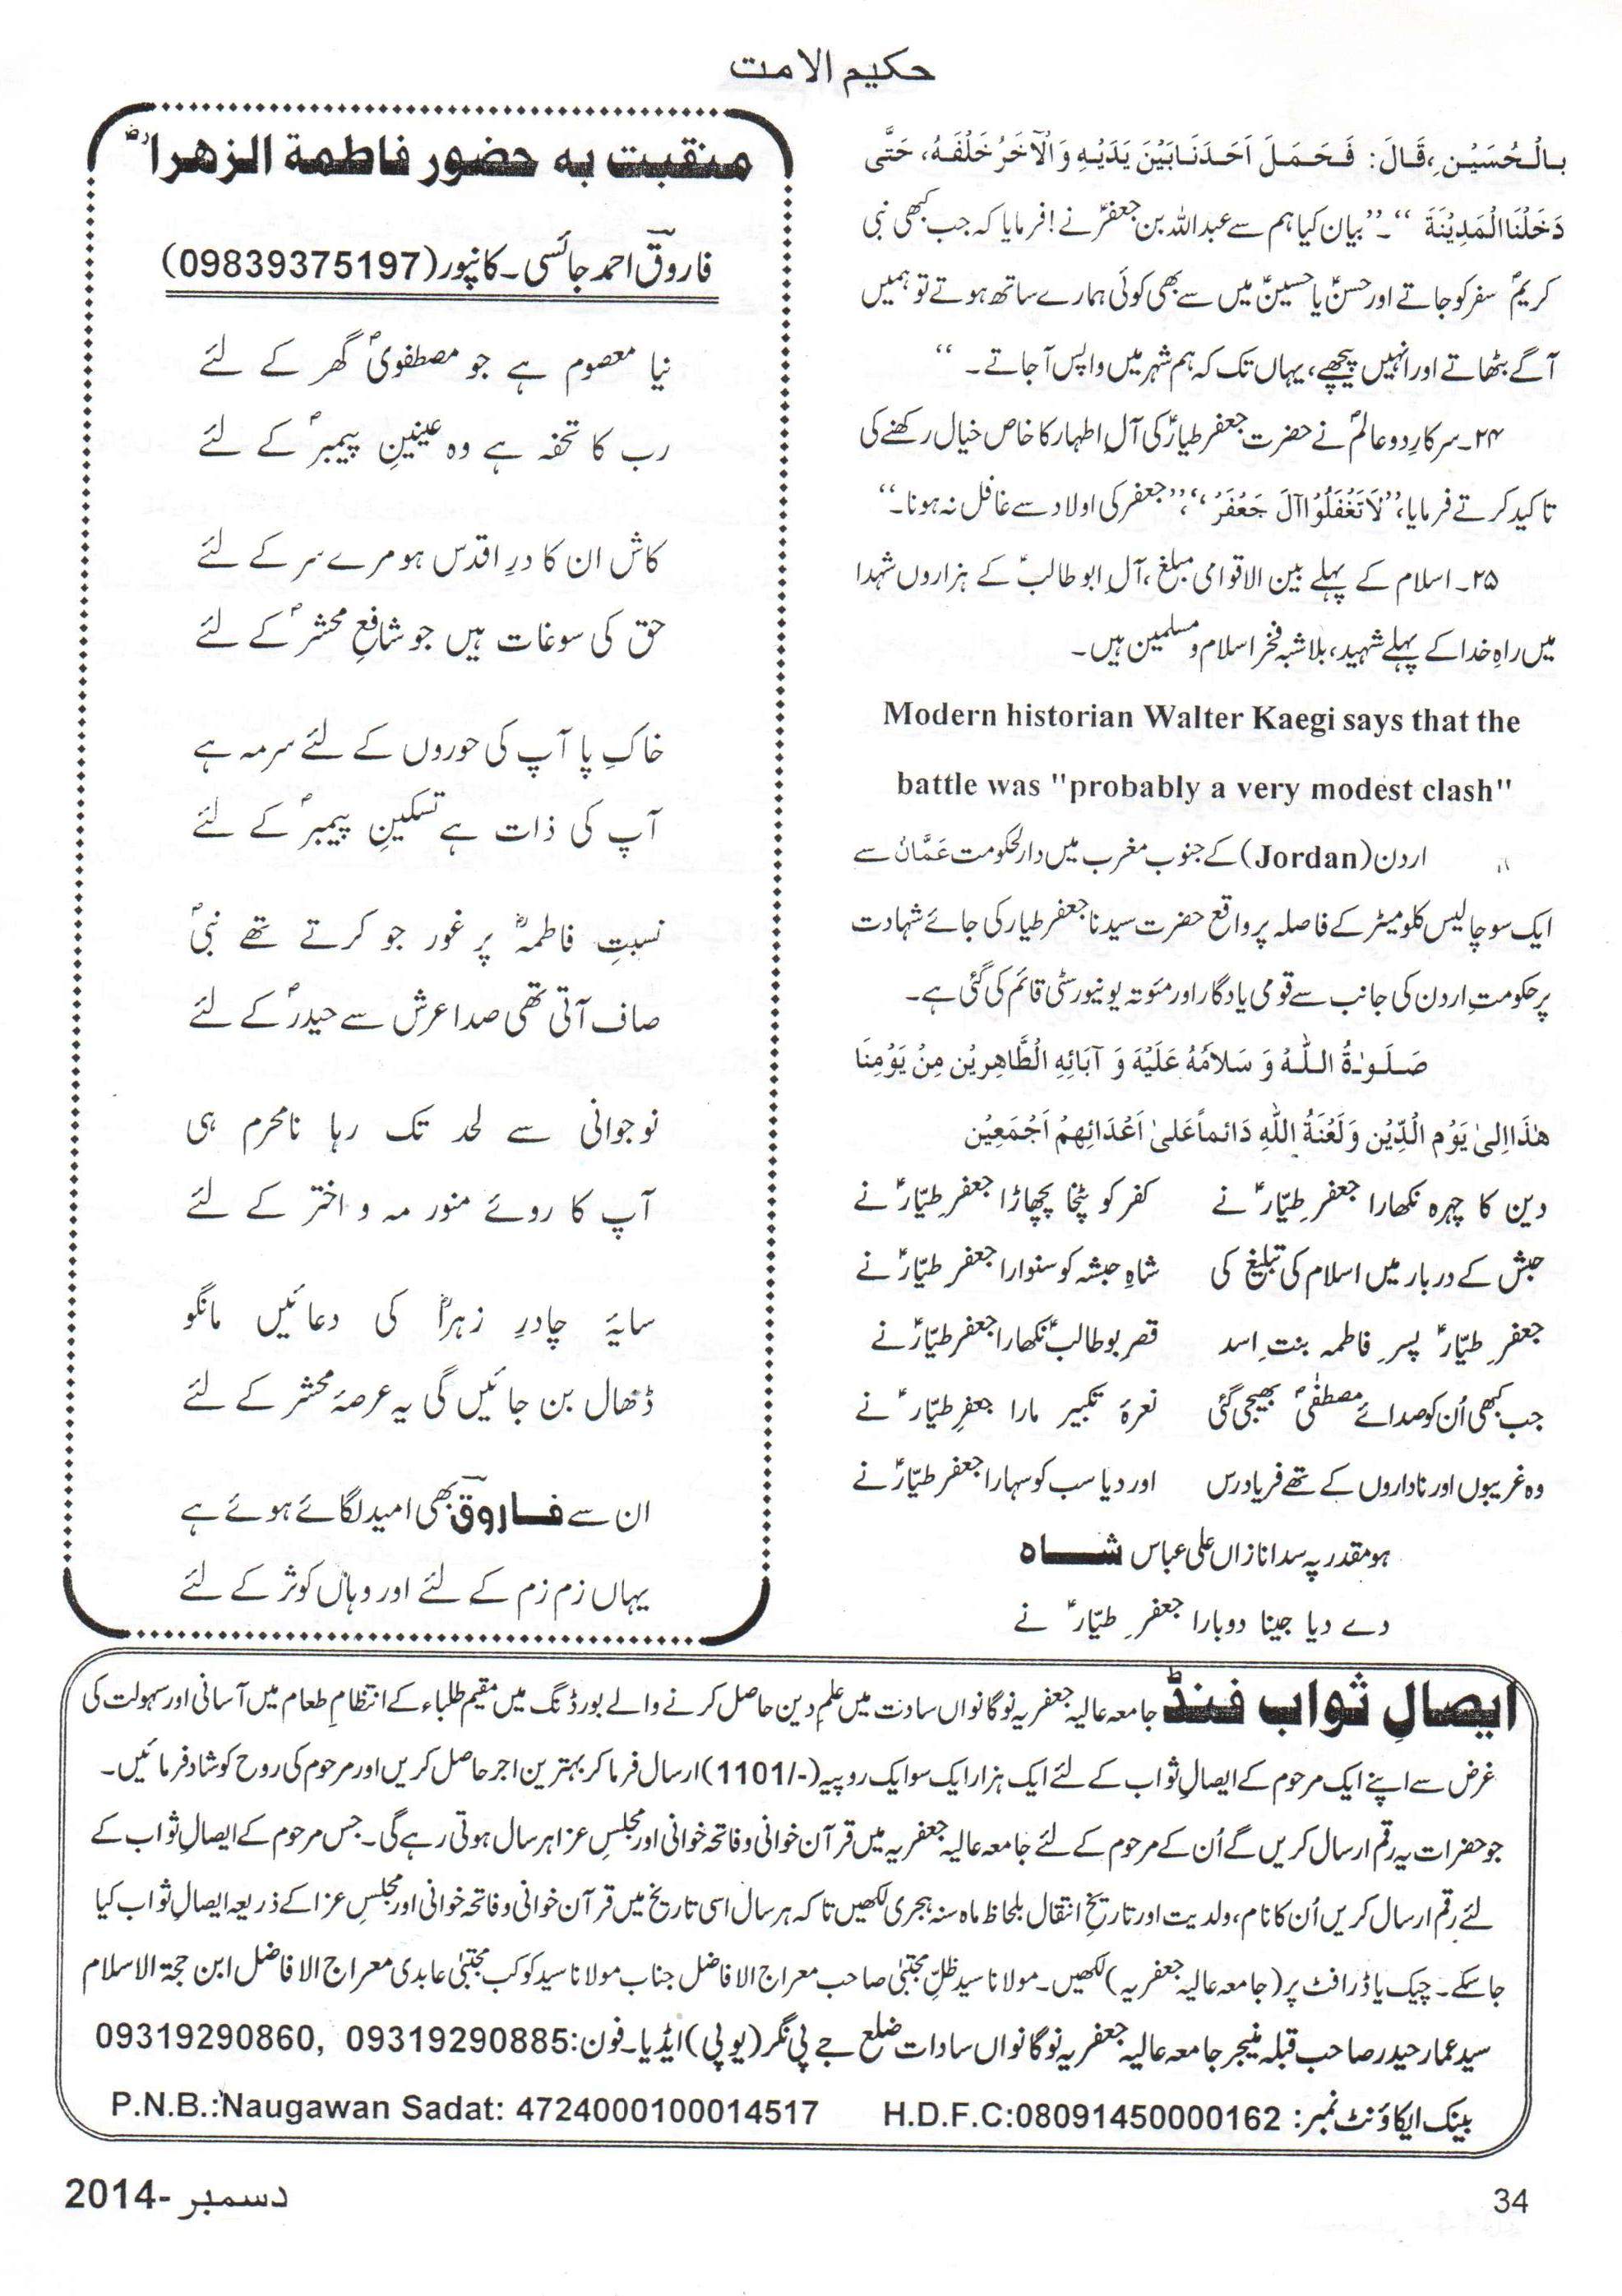 حکیم الامت
بِالْحُسَیْنِ، قَالَ: فَحَمَلَ اَحَدَنَا بَیْنَ یَدَیْهِ وَالْآخَرُ خَلْفَهُ، حَتّٰی
دَخَلْنَا الْمَدِیْنَةَ ‘‘۔’’بیان کیا ہم سے عبداللہ بن جعفرؑ نے! فرمایا کہ جب کبھی نبی
کریمؐ سفر کو جاتے اور حسنؑ یا حسینؑ میں سے بھی کوئی ہمارے ساتھ ہوتے تو ہمیں
آگے بٹھاتے اور انہیں پیچھے، یہاں تک کہ ہم شہر میں واپس آ جاتے۔ ‘‘
۲۴۔ سرکارِ دو عالمؐ نے حضرت جعفر طیارؑ کی آلِ اطہار کا خاص خیال رکھنے کی
تاکید کرتے فرمایا، ’’لَا تَغْفَلُوْا آلَ جَعْفَرْ‘‘، ’’جعفر کی اولاد سے غافل نہ ہونا۔‘‘
۲۵۔ اسلام کے پہلے بین الاقوامی مبلغ، آلِ ابو طالبؑ کے ہزاروں شہدا
میں راہِ خدا کے پہلے شہید، بلا شبہ فخرِ اسلام و مسلمین ہیں۔
Modern historian Walter Kaegi says that the
battle was "probably a very modest clash"
اردن (Jordan) کے جنوب مغرب میں دارلحکومت عَمَّان سے
ایک سو چالیس کلو میٹر کے فاصلہ پر واقع حضرت سیدنا جعفر طیار کی جائے شہادت
پر حکومتِ اردن کی جانب سے قومی یادگار اور مئوتہ یونیورسٹی قائم کی گئی ہے۔
صَلَوٰةُ اللّٰهُ وَ سَلَامُهُ عَلَیْهَ وَ آبَائِهِ الْطَّاهِرِیْن مِنْ یَوْمِنَا
هٰذَا اِلیٰ یَوْمِ الْدِّیْن وَ لَعْنَةُ اللّٰهِ دَائماً عَلیٰ اَعْدَائِهِمْ اَجْمَعِیْن
دین کا چہرہ نکھارا جعفرِ طیّارؑ نے    کفر کو پٹخا پچھاڑا جعفرِ طیّارؑ نے
حبش کے دربار میں اسلام کی تبلیغ کی    شاہِ حبشہ کو سنوارا جعفرِ طیّارؑ نے
جعفرِ طیّارؑ پسرِ فاطمہ بنتِ اسد    قصرِ بو طالبؑ نکھارا جعفر طیّارؑ نے
جب کبھی اُن کو صدائے مصطفٰیؐ بھیجی گئی    نعرۂ تکبیر مارا جعفرِ طیّارؑ نے
وہ غریبوں اور ناداروں کے تھے فریاد رس    اور دیا سب کو سہارا جعفرِ طیّارؑ نے
ہو مقدر پہ سدا نازاں علی عباس شاہ
دے دیا جینا دوبارا جعفرِ طیّارؑ نے
منقبت به حضور فاطمة الزهراؓ
فاروقؔ احمد جائسی۔ کانپور (09839375197)
نیا معصوم ہے جو مصطفویؐ گھر کے لئے
رب کا تحفہ ہے وہ عینینِ پیمبرؐ کے لئے
کاش ان کا درِ اقدس ہو مرے سر کے لئے
حق کی سوغات ہیں جو شافعِ محشرؐ کے لئے
خاکِ پا آپ کی حوروں کے لئے سرمہ ہے
آپ کی ذات ہے تسکینِ پیمبرؐ کے لئے
نسبتِ فاطمہؓ پر غور جو کرتے تھے نبیؐ
صاف آتی تھی صدا عرش سے حیدرؑ کے لئے
نوجوانی سے لحد تک رہا نامحرم ہی
آپ کا روئے منور مہ و اختر کے لئے
سایۂ چادرِ زہراؓ کی دعائیں مانگو
ڈھال بن جائیں گی یہ عرصۂ محشر کے لئے
ان سے فاروقؔ بھی امید لگائے ہوئے ہے
یہاں زم زم کے لئے اور وہاں کوثر کے لئے
ایصالِ ثواب فنڈ جامعہ عالیہ جعفریہ نوگانواں سادت میں علمِ دین حاصل کرنے والے بورڈنگ میں مقیم طلباء کے انتظامِ طعام میں آسانی اور سہولت کی
غرض سے اپنے ایک مرحوم کے ایصالِ ثواب کے لئے ایک ہزار ایک سو ایک روپیہ (1101/-) ارسال فرما کر بہترین اجر حاصل کریں اور مرحوم کی روح کو شاد فرمائیں۔
جو حضرات یہ رقم ارسال کریں گے اُن کے مرحوم کے لئے جامعہ عالیہ جعفریہ میں قرآن خوانی و فاتحہ خوانی اور مجلسِ عزا ہر سال ہوتی رہے گی۔ جس مرحوم کے ایصالِ ثواب کے
لئے رقم ارسال کریں اُن کا نام، ولدیت اور تاریخِ انتقال بلحاظ ماہ سنہ ہجری لکھیں تا کہ ہر سال اسی تاریخ میں قرآن خوانی و فاتحہ خوانی اور مجلسِ عزا کے ذریعہ ایصالِ ثواب کیا
جا سکے۔ چیک یا ڈرافٹ پر (جامعہ عالیہ جعفریہ) لکھیں۔ مولانا سید ظلِّ مجتبیٰ صاحب معراج الافاضل جناب مولانا سید کوکب مجتبیٰ عابدی معراج الافاضل ابن حجۃ الاسلام
سید عمار حیدر صاحب قبلہ منیجر جامعہ عالیہ جعفریہ نوگانواں سادات ضلع جے پی نگر (یو پی) انڈیا۔ فون: 09319290885 ,09319290860
بینک اکاؤنٹ نمبر: H.D.F.C:08091450000162    P.N.B.:Naugawan Sadat: 4724000100014517
34    دسمبر -2014